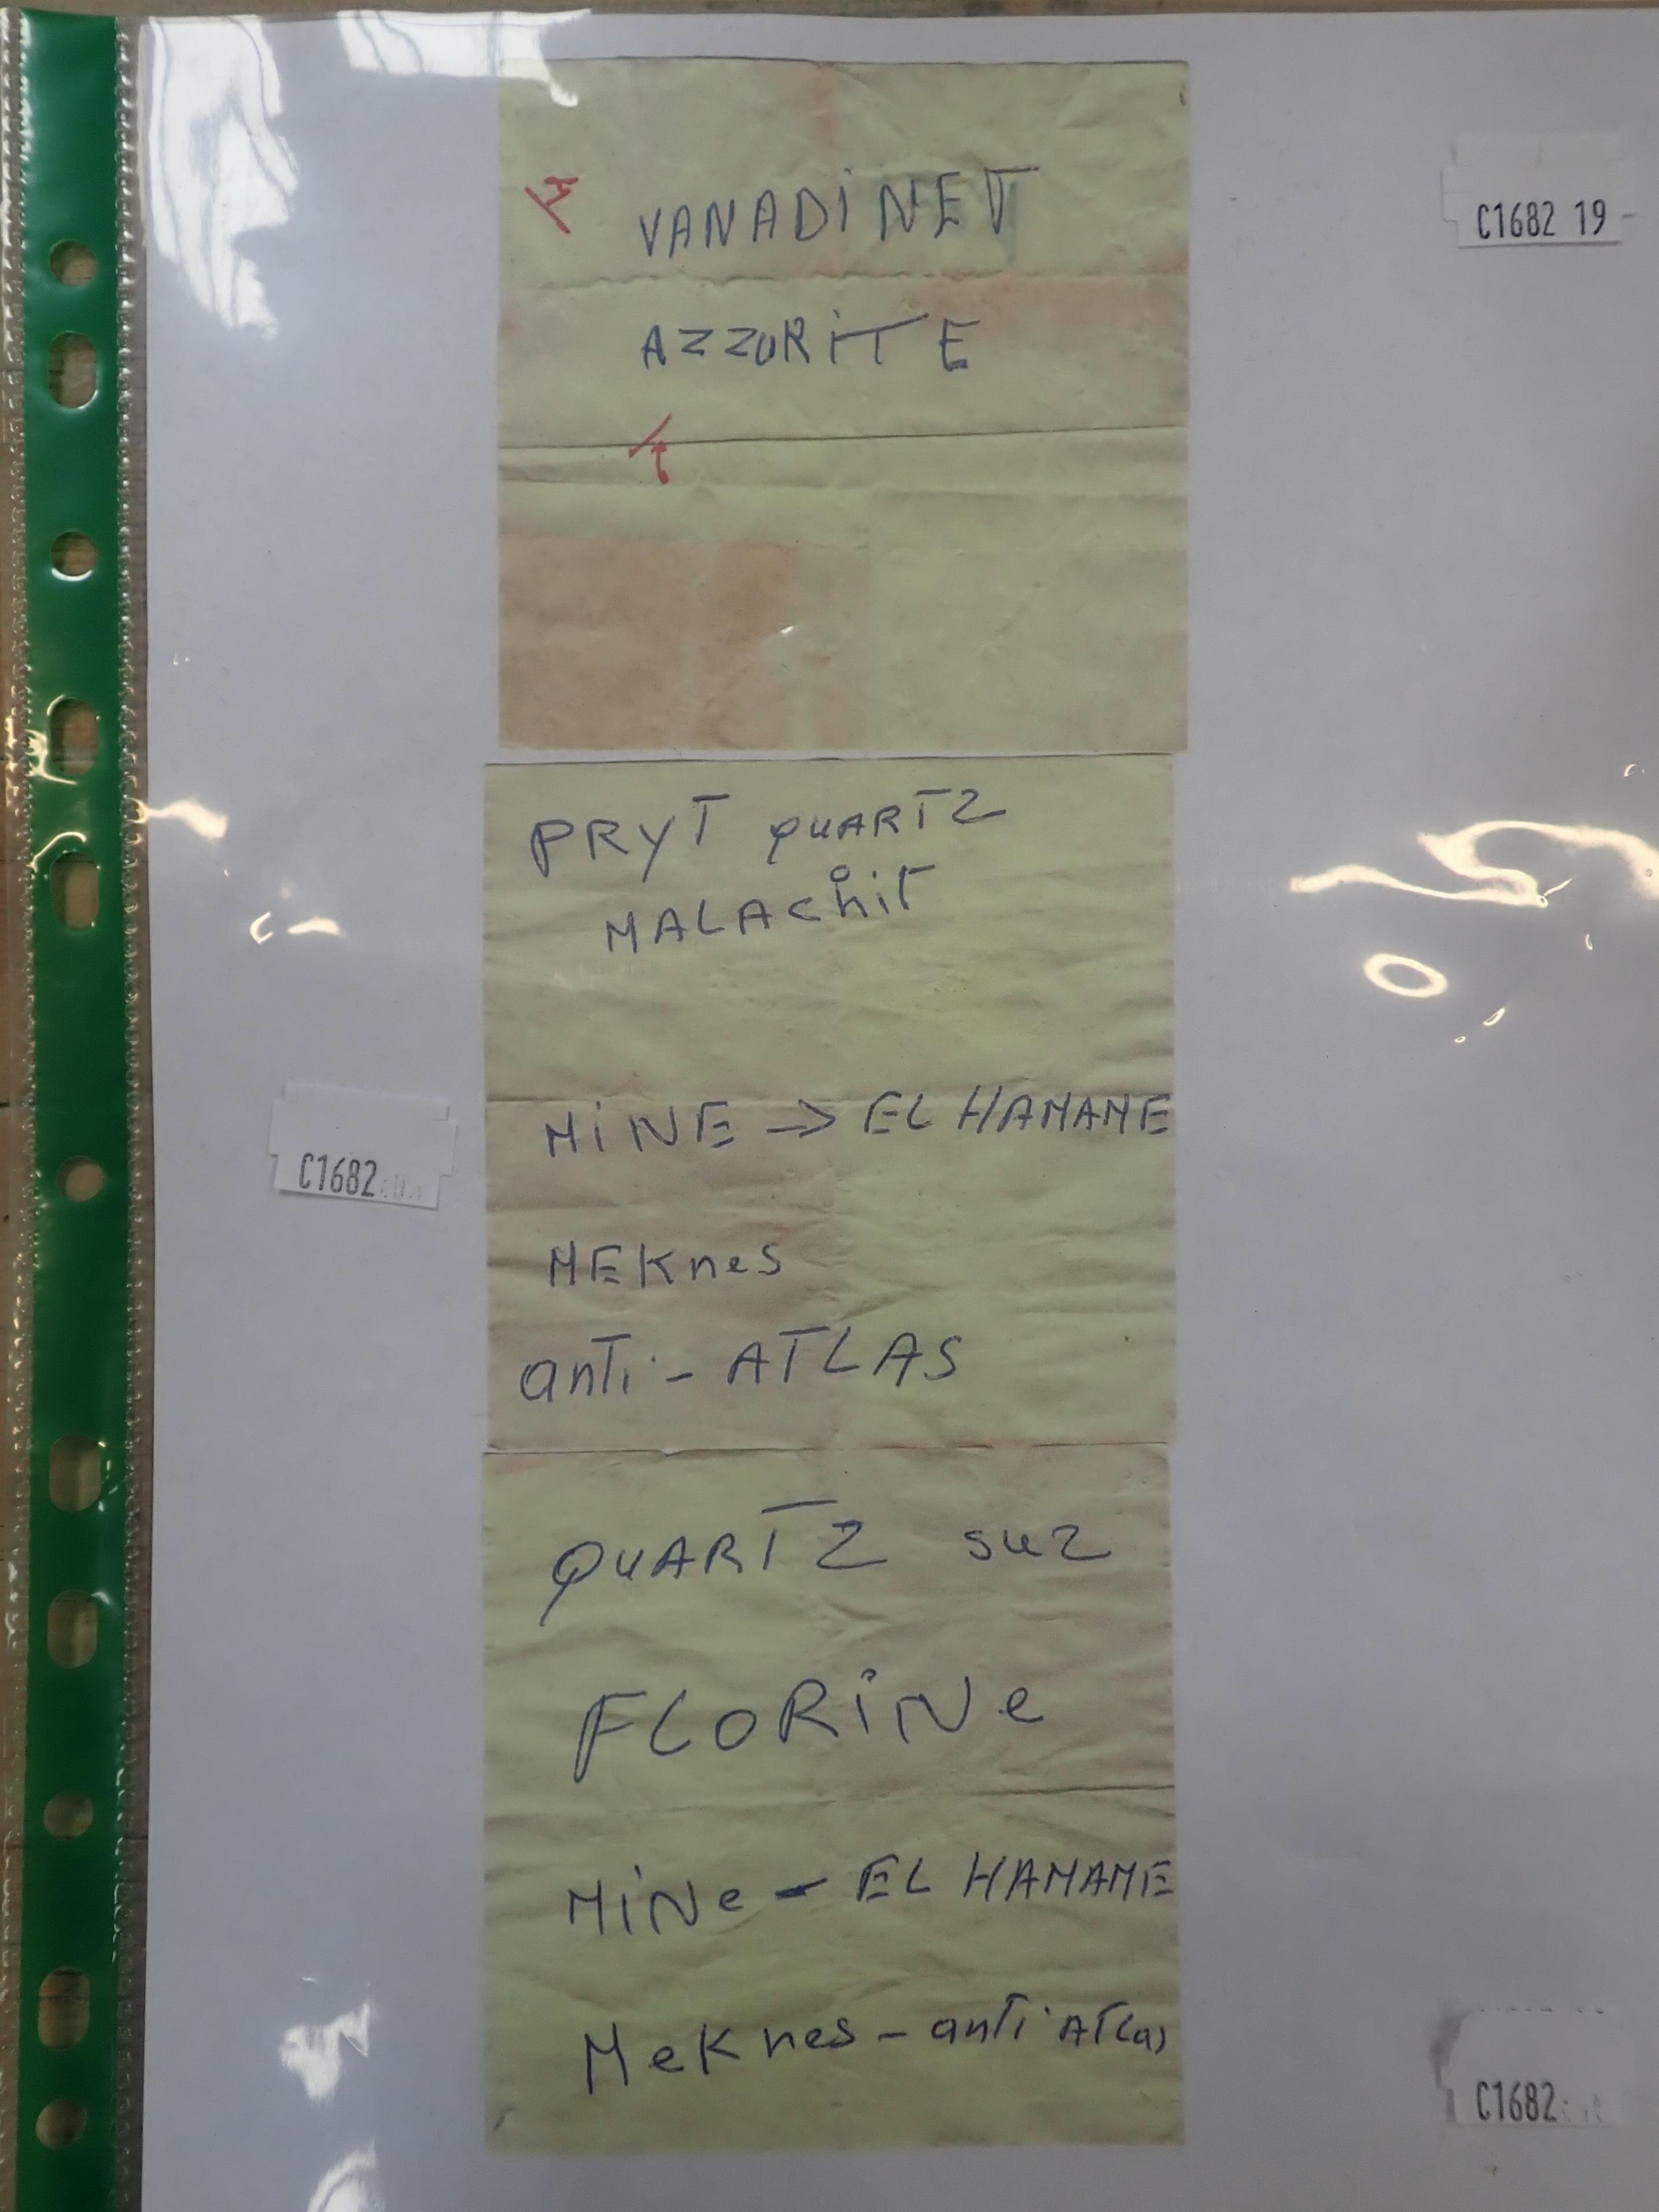 VANADiNET
C1682 19
AZZURiTE
PRYT QUARTZ
MALAChiT
MiNE → EL HAMAME
C1682
MEKnes
anTi - ATLAS
QUARTZ suz
FLORiNe
MiNe - EL HAMAME
MeKnes - anTi ATLas
C1682